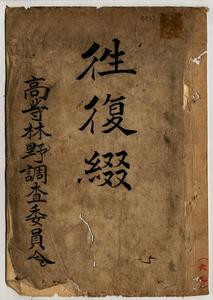 往復綴
高等林野調査委員会